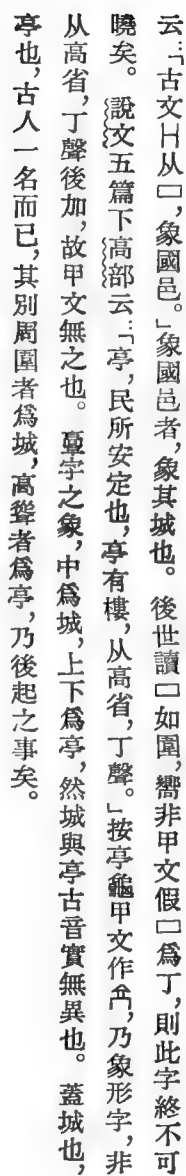 云:「古文冂从囗,象國邑。」象國邑者,象其城也。後世讀囗如圍,嚮非甲文假囗爲丁,則此字終不可
曉矣。說文五篇下高部云:「亭,民所安定也,亭有樓,从高省,丁聲。」按亭龜甲文作,乃象形字,非
从高省,丁聲後加,故甲文無之也。𩫏字之象,中爲城,上下爲亭,然城與亭古音實無異也。蓋城也,
亭也,古人一名而已,其別周圍者爲城,高聳者爲亭,乃後起之事矣。